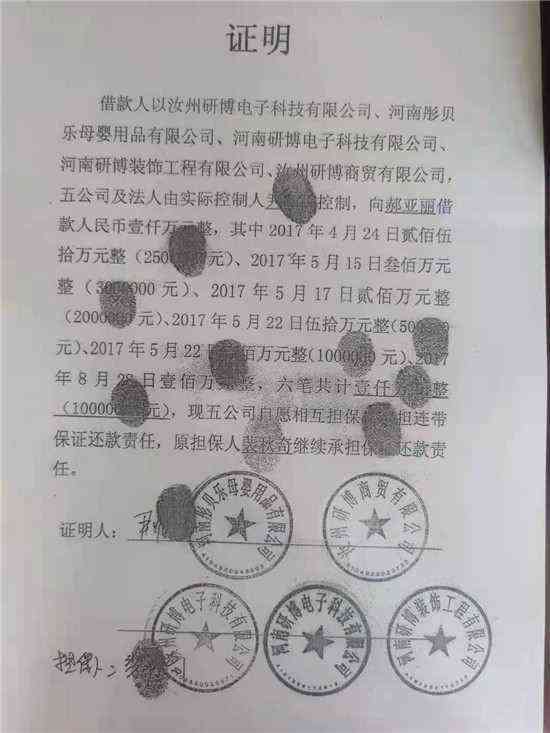 证明
借款人以汝州研博电子科技有限公司、河南彤贝
乐母婴用品有限公司、河南研博电子科技有限公司、
河南研博装饰工程有限公司、汝州研博商贸有限公司,
五公司及法人由实际控制人 控制，向郝亚丽借
款人民币壹仟万元整，其中2017年4月24日贰佰伍
拾万元整（2500 元）、2017年5月15日叁佰万元
整（3000000元）、2017年5月17日贰佰万元整
(2000000元)、2017年5月22日伍拾万元整(500
元)、2017年5月22 佰万元整(1000000元)、2017
年8月28日壹佰万元整，六笔共计壹仟 整
(100000 元)，现五公司自愿相互担保 担连带
保证还款责任，原担保人裴秋奇继续承担保 还款责
任。
证明人：
河南彤贝乐母婴用品有限公司
汝州研博商贸有限公司
汝州研博电子科技有限公司
河南研博电子科技有限公司
河南研博装饰工程有限公司
担保人：